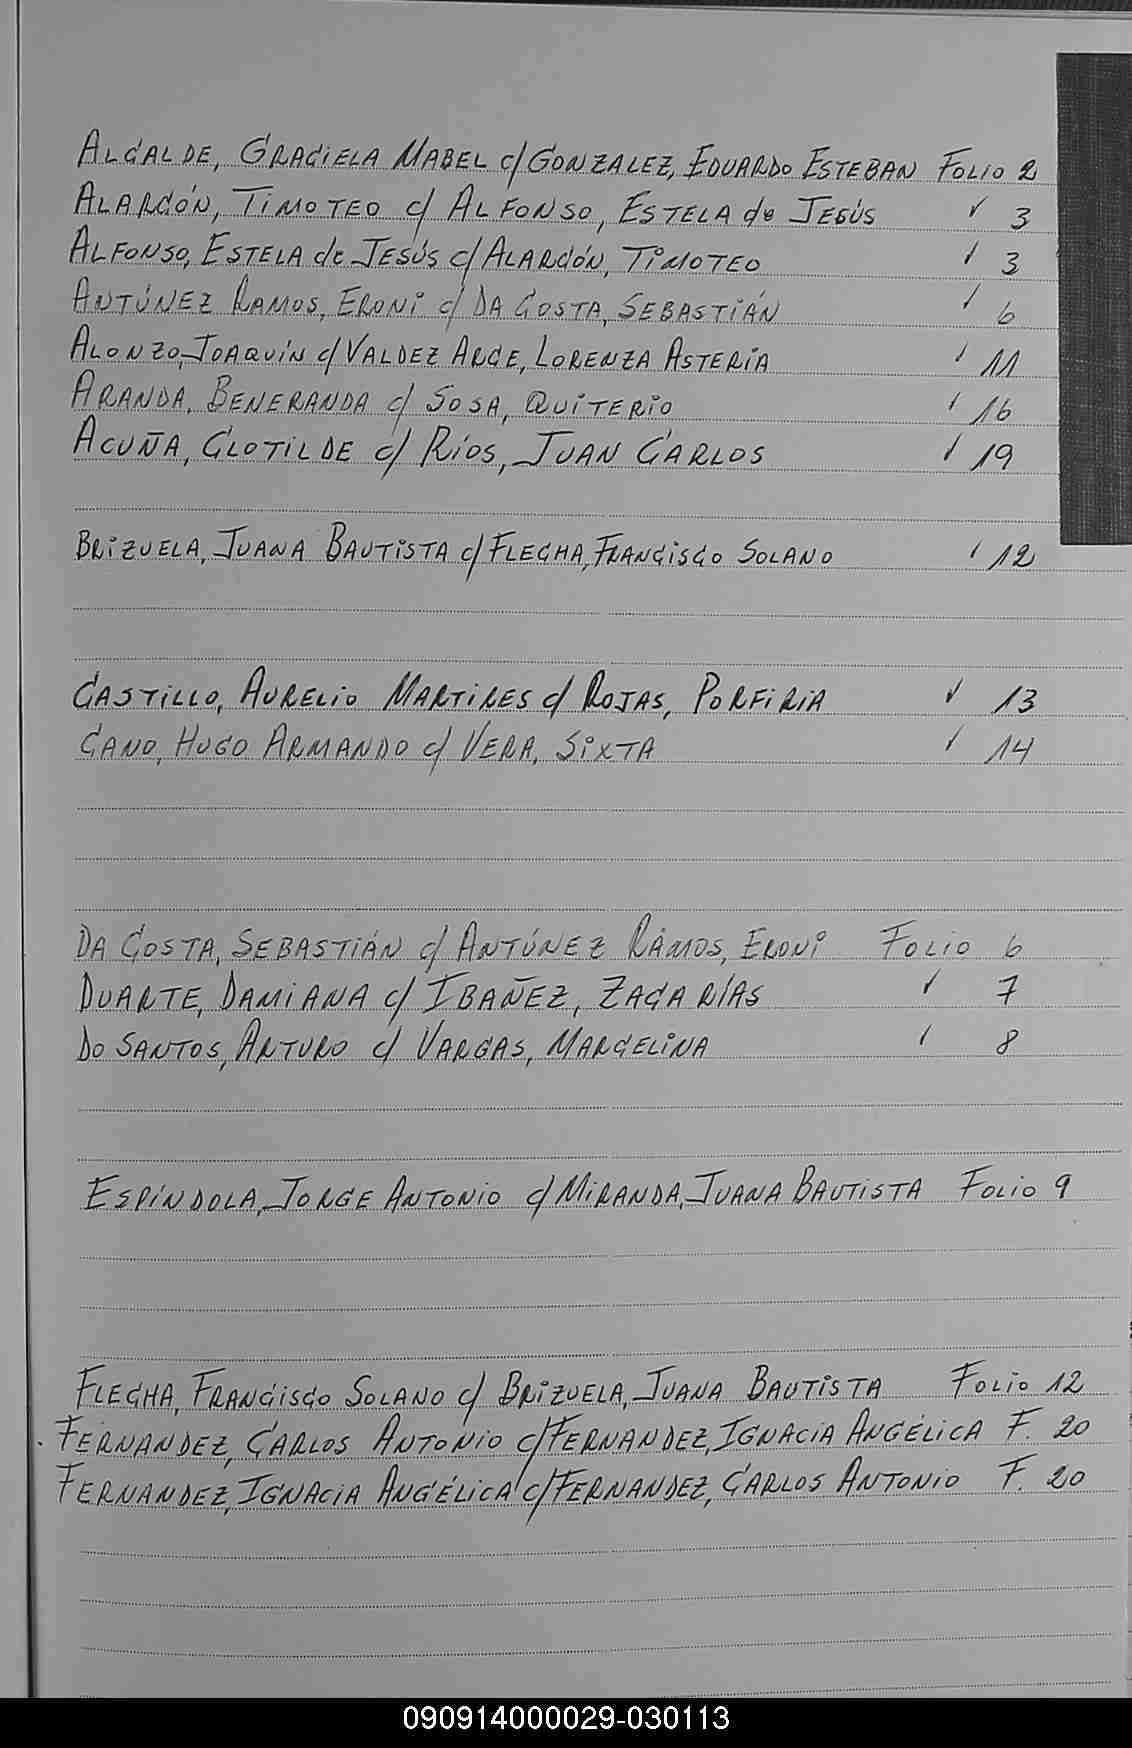 ALCALDE, GRACIELA MABEL c/ GONZALEZ, EDUARDO ESTEBAN FOLIO 2
ALARCÓN, TIMOTEO c/ ALFONSO, ESTELA de JESÚS " 3
ALFONSO, ESTELA de JESÚS c/ ALARCÓN, TIMOTEO " 3
ANTÚNEZ RAMOS, ERONI c/ DA COSTA, SEBASTIÁN " 6
ALONZO, JOAQUÍN c/ VALDEZ ARCE, LORENZA ASTERIA " 11
ARANDA, BENERANDA c/ SOSA, QUITERIO " 16
ACUÑA, CLOTILDE c/ RÍOS, JUAN CARLOS " 19
BRIZUELA, JUANA BAUTISTA c/ FLECHA, FRANCISCO SOLANO " 12
CASTILLO, AURELIO MARTIRES c/ ROJAS, PORFIRIA " 13
CANO, HUGO ARMANDO c/ VERA, SIXTA " 14
DA COSTA, SEBASTIÁN c/ ANTÚNEZ RAMOS, ERONI FOLIO 6
DUARTE, DAMIANA c/ IBAÑEZ, ZACARÍAS " 7
DO SANTOS, ARTURO c/ VARGAS, MARCELINA " 8
ESPÍNDOLA, JORGE ANTONIO c/ MIRANDA, JUANA BAUTISTA FOLIO 9
FLECHA, FRANCISCO SOLANO c/ BRIZUELA, JUANA BAUTISTA FOLIO 12
FERNANDEZ, CARLOS ANTONIO c/ FERNANDEZ, IGNACIA ANGÉLICA F. 20
FERNANDEZ, IGNACIA ANGÉLICA c/ FERNANDEZ, CARLOS ANTONIO F. 20
090914000029-030113